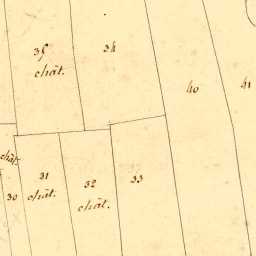 35
chât.
34
40
41
chât.
31
chât.
30
32
chât.
33